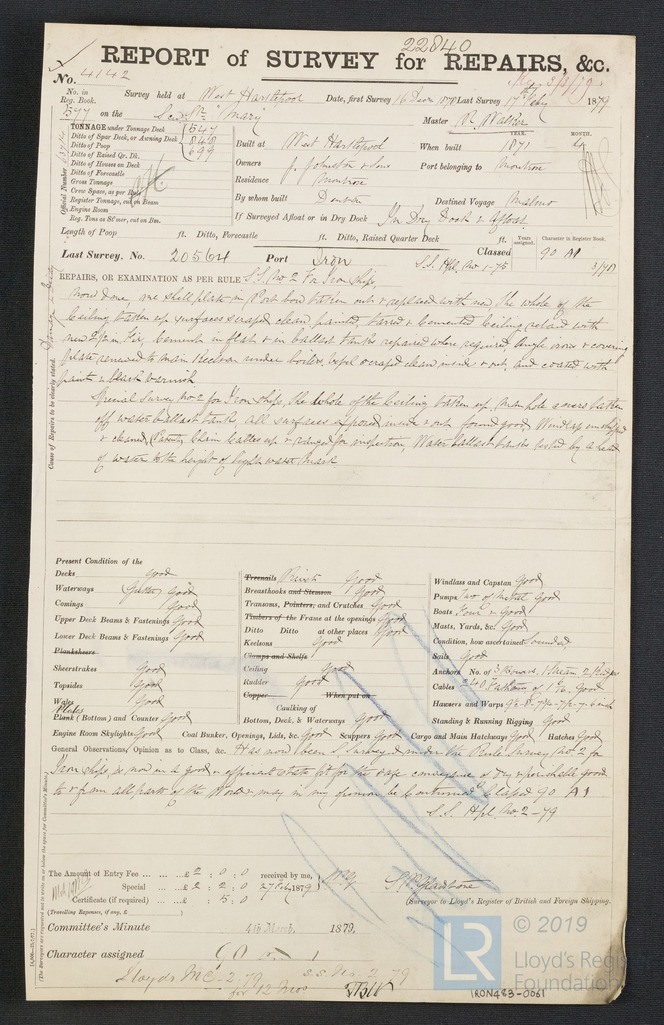 22840
REPORT of SURVEY for REPAIRS, &c.
No. 4142
No. in Reg. Book. Survey held at West Hartlepool Date, first Survey 16 Last Survey 17 1879
577 on the Mary Master R. Walker
TONNAGE under Tonnage Deck 547
Ditto of Spar Deck, or Awning Deck
Ditto of Poop 699
Ditto of Raised Qr. Dk.
Ditto of Houses on Deck
Ditto of Forecastle
Gross Tonnage
Crew Space, as per Rule
Register Tonnage, cut on Beam
Engine Room
Reg. Tons as St'mer, cut on Bm.
Official Number
Built at West Hartlepool When built YEAR. 1871 MONTH. 4
Owners J. Johnston & Sons Port belonging to Montrose
Residence Montrose
By whom built Denton Destined Voyage Malmo
If Surveyed Afloat or in Dry Dock In Dry Dock & Afloat
Length of Poop ft. Ditto, Forecastle ft. Ditto, Raised Quarter Deck ft.
Years assigned. Character in Register Book.
Last Survey, No. 20564 Port Iron Classed 90 A1
S.S. Hpl. No 1-75
REPAIRS, OR EXAMINATION AS PER RULE S.S. No 2 For Iron Ship,
Cause of Repairs to be clearly stated.
Work done, one shell plate in Port bow taken out & replaced with new the whole of the
Ceiling taken up surfaces scraped clean painted, tarred & Cemented Ceiling relaid with
new Fir, Cement in flat & in ballast tanks repaired where required angle irons & covering
plate renewed to main Keelson under boiler, vessel scraped clean inside & out, and coated with
paint & black varnish.
Special Survey No 2 for Iron Ships, the whole of the Ceiling taken up, Manhole covers taken
off water ballast tanks, all surfaces exposed inside & out found good, Windlass unshipped
& cleaned, Chain Cables up & ranged for inspection, Water ballast tanks tested by a head
of water to the height of light water mark
Present Condition of the
Decks Good
Waterways Gutter Good
Comings Good
Upper Deck Beams & Fastenings Good
Lower Deck Beams & Fastenings Good
Planksheers
Sheerstrakes Good
Topsides Good
Wales Good
Plank (Bottom) and Counter Good
Engine Room Skylights Good
Treenails Rivets Good
Breasthooks and Stemson Good
Transoms, Pointers, and Crutches Good
Timbers of the Frame at the openings Good
Ditto Ditto at other places Good
Keelsons Good
Clamps and Shelfs
Ceiling Good
Rudder Good
Copper When put on
Caulking of
Bottom, Deck, & Waterways Good
Coal Bunker, Openings, Lids, &c. Good Scuppers Good Cargo and Main Hatchways Good Hatches Good
Windlass and Capstan Good
Pumps Two of Metal Good
Boats Four & Good
Masts, Yards, &c. Good
Condition, how ascertained Sounded
Sails Good
Anchors No. of 3 Bowers, 1 Stream 2 Kedges
Cables 240 Fathom of Good
Hausers and Warps
Standing & Running Rigging Good
General Observations, Opinion as to Class, &c. Has now been S. Surveyed under the Rule Survey No 2 for
Iron Ships, is now in a good & efficient state fit for the safe conveyance of Dry & perishable goods
to & from all parts of the World & may in my opinion be Continued Classed 90 A1
S.S. Hpl. No. 2-79
The Amount of Entry Fee ... £2 : 0 : 0 received by me,
Special ... £ 2 : 2 : 0 27 Feby 1879
Certificate (if required) ... £ : 5 : 0
(Travelling Expenses, if any, £
S. P. Gladstone
(Surveyor to Lloyd's Register of British and Foreign Shipping.
Committee's Minute 4th March, 1879.
Character assigned 90 A 1
Lloyds MC-2.79 S.S. No 2-79
for 12 Mos
LR
© 2019
Lloyd's Regis
Foundation
IRON483-0061